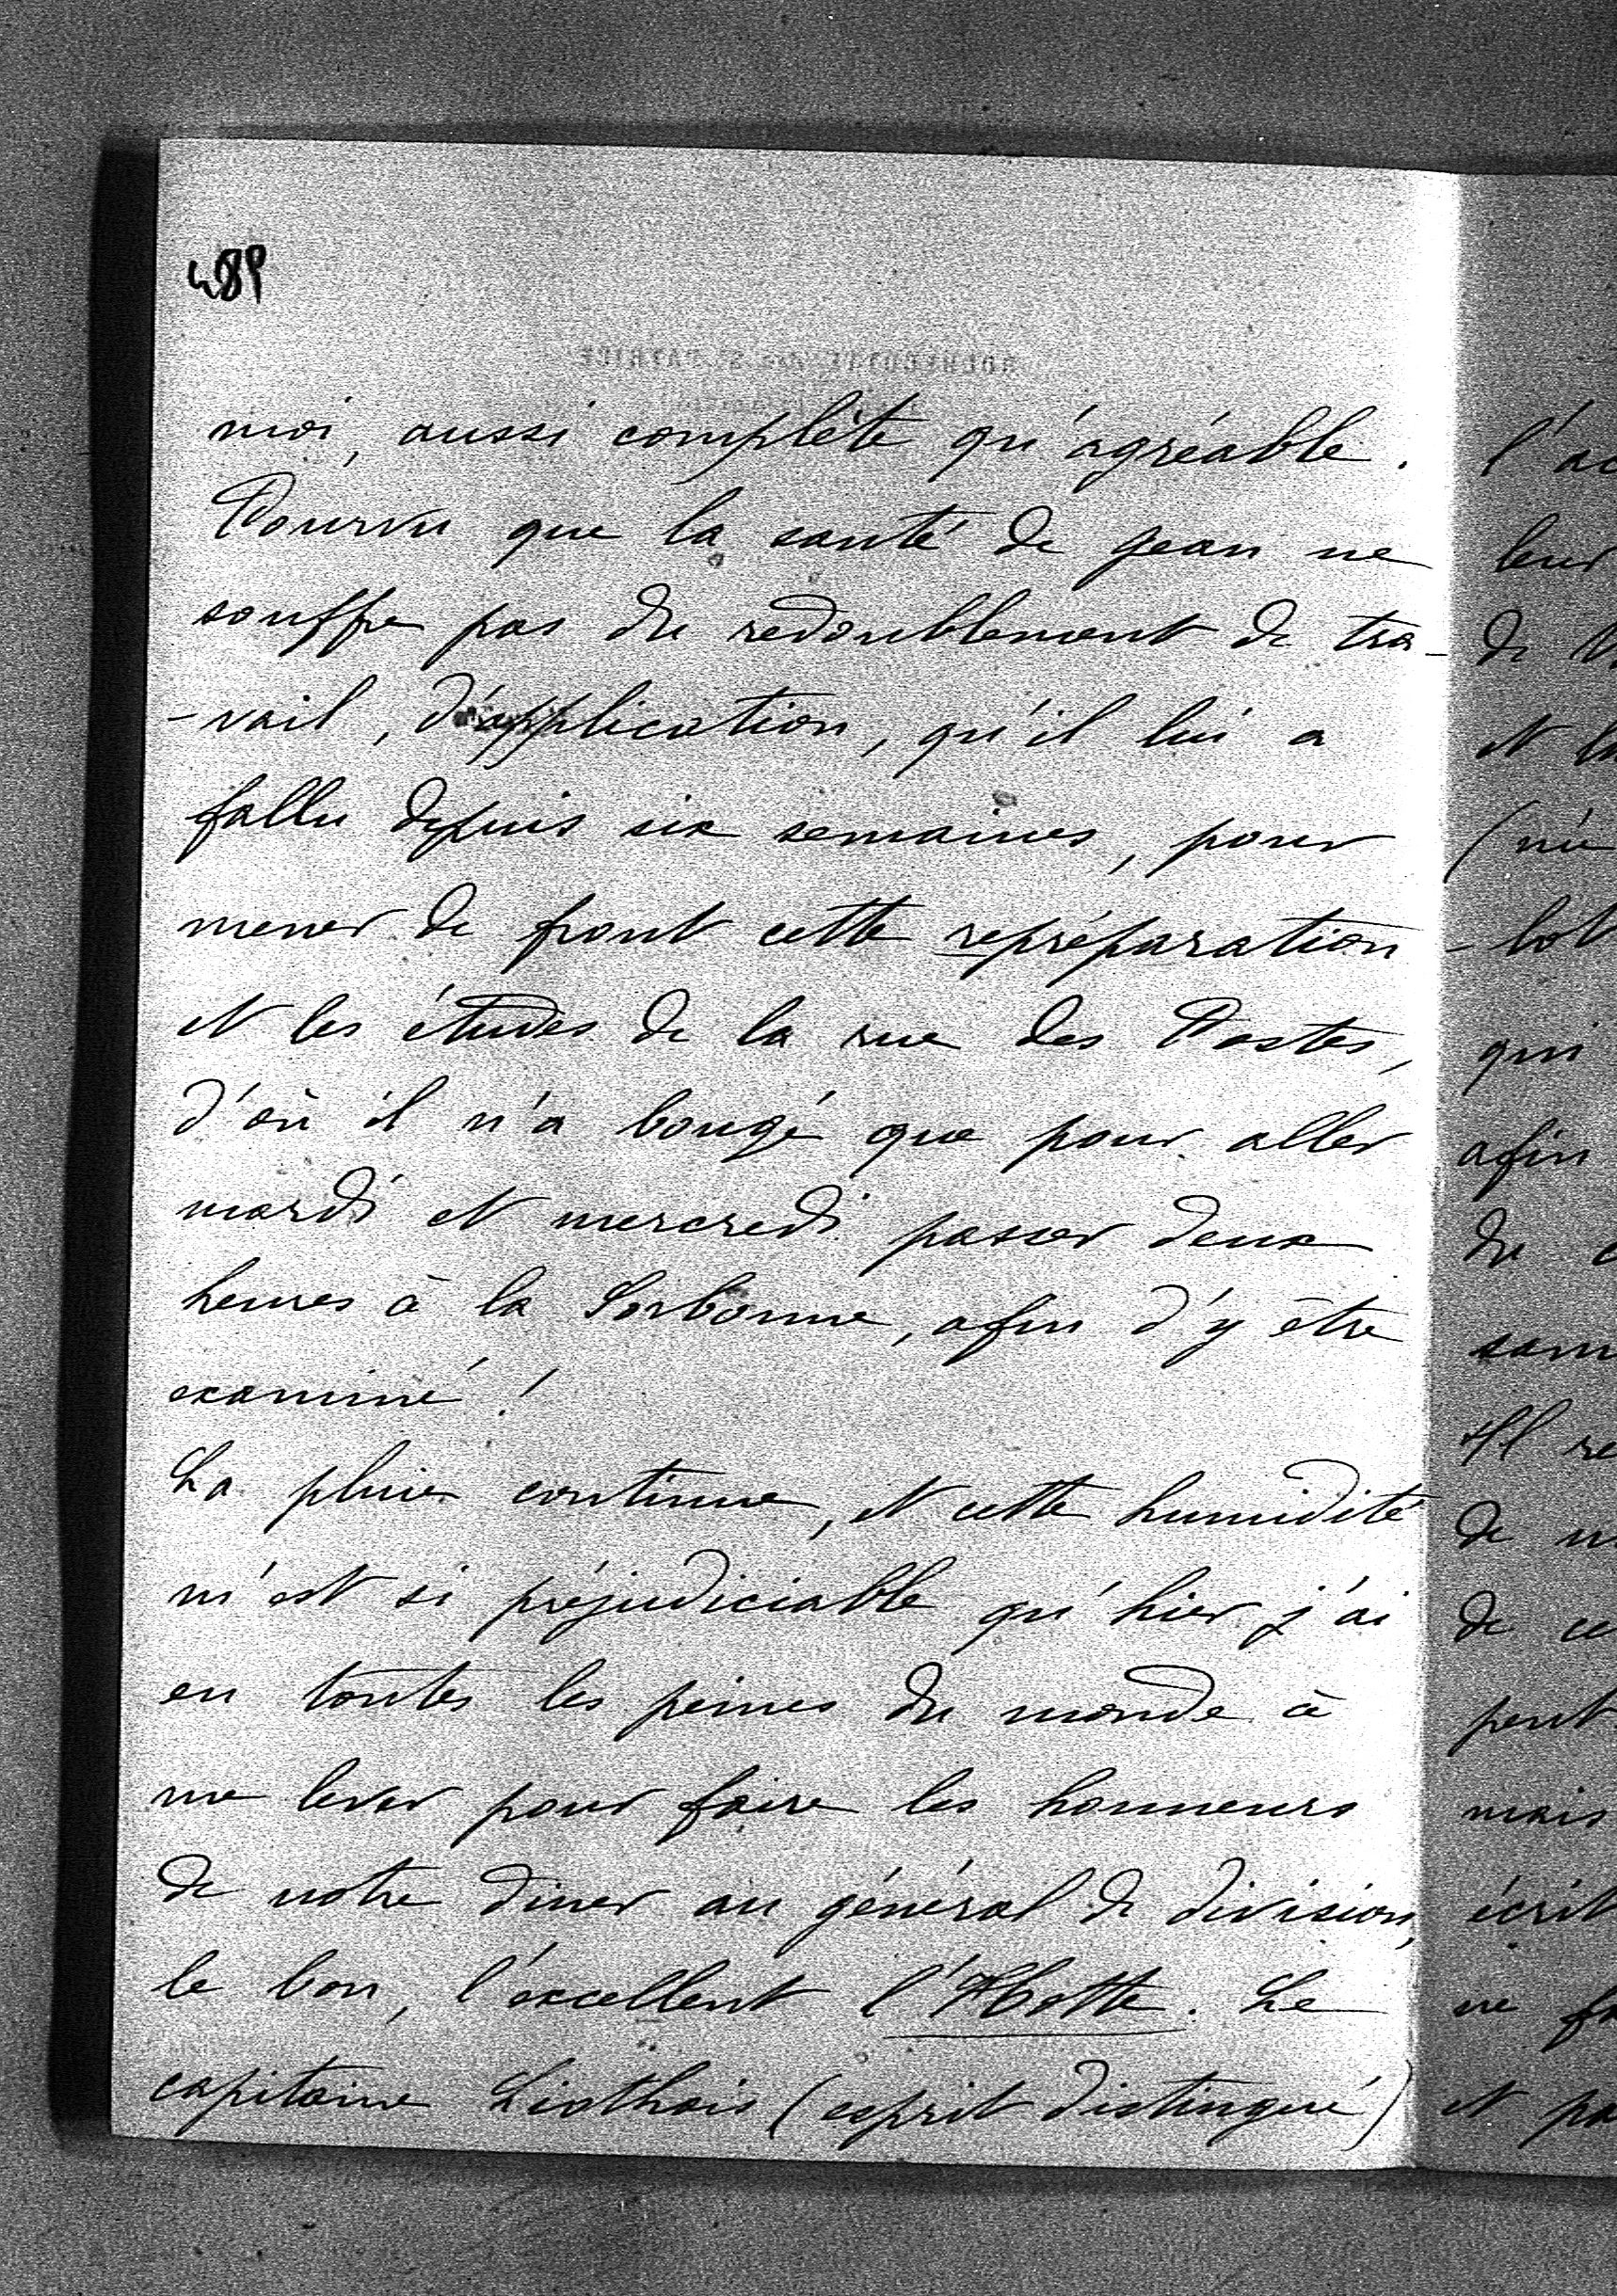 489
moi, aussi complète qu'agréable.
Pourvu que la santé de Jean ne
souffre pas du redoublement de tra-
-vail, d'application, qu'il lui a
fallu depuis six semaines, pour
mener de front cette repréparation
et les études de la rue des Postes,
d'où il n'a bougé que pour aller
mardi et mercredi passer deux
heures à la Sorbonne, afin d'y être
examiné !
La pluie continue, et cette humidité
m'est si préjudiciable qu'hier j'ai
eu toutes les peines du monde à
me lever pour faire les honneurs
de notre dîner au général de division,
le bon, l'excellent l'Hotte. Le
capitaine Liothais (esprit distingué)